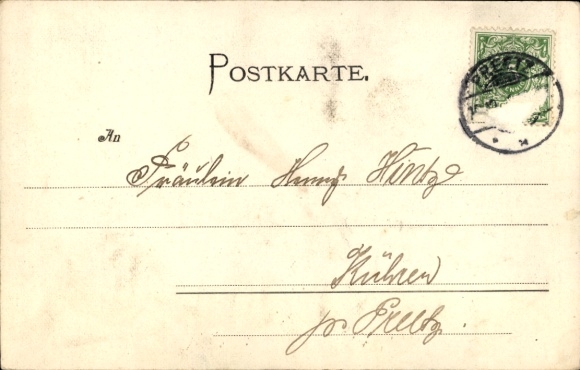 POSTKARTE.
PREETZ
An
Fräulein Henny Hintz
Kühren
pr Preetz.